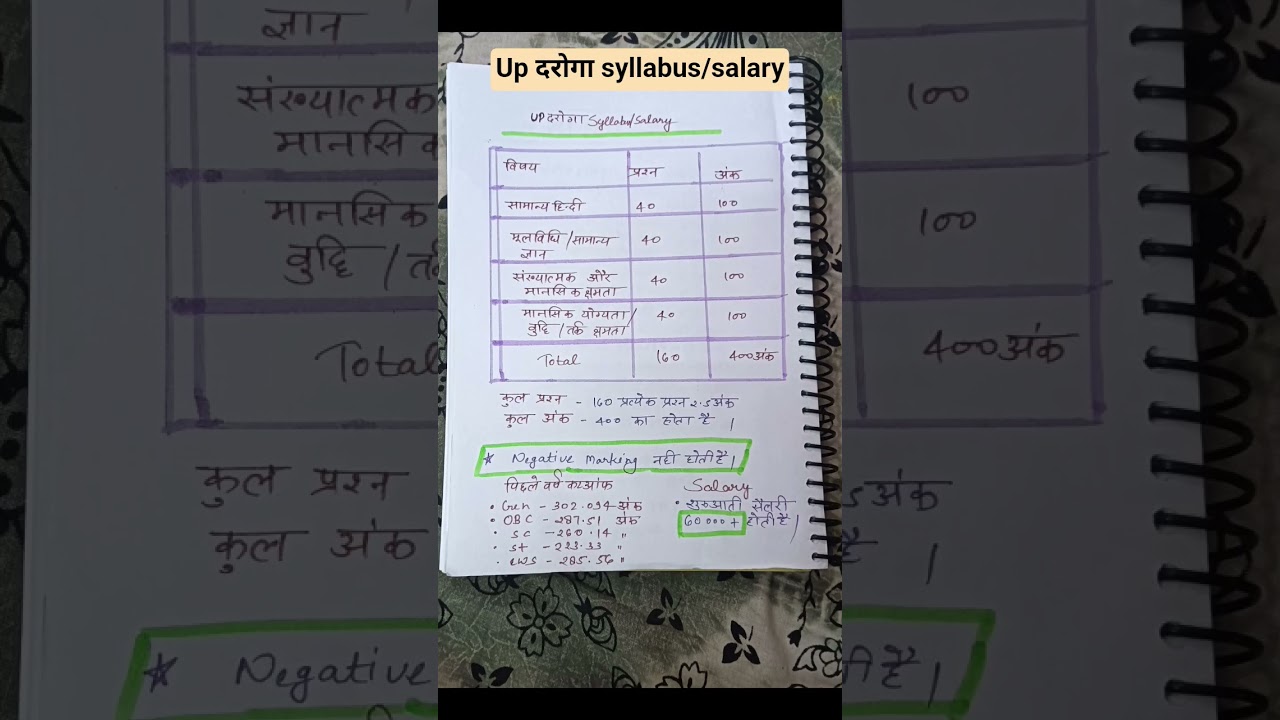 Up दरोगा syllabus/salary
UP दरोगा Syllabus/Salary
विषय प्रश्न अंक
सामान्य हिन्दी 40 100
मूलविधि / सामान्य ज्ञान 40 100
संख्यात्मक और मानसिक क्षमता 40 100
मानसिक योग्यता / बुद्धि / तर्क क्षमता 40 100
Total 160 400 अंक
कुल प्रश्न - 160 प्रत्येक प्रश्न 2.5 अंक
कुल अंक - 400 का होता है |
★ Negative marking नही होती है |
पिछले वर्ष कटऑफ
• Gen - 302.094 अंक
• OBC - 287.51 अंक
• SC - 260.14 "
• St - 223.33 "
• EWS - 285.56 "
Salary
• शुरुआती सैलरी
60000+ होती है |
ज्ञान
संख्यात्मक 100
मानसिक
मानसिक 100
बुद्धि / त
Total 400 अंक
कुल प्रश्न 5 अंक
कुल अंक
★ Negative होती है |